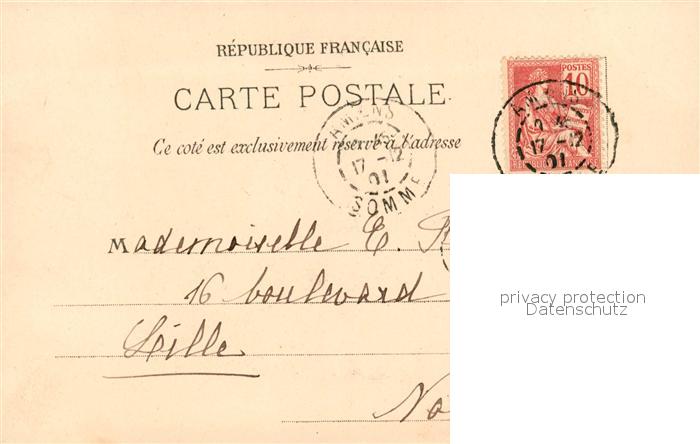 RÉPUBLIQUE FRANÇAISE
CARTE POSTALE
Ce coté est exclusivement réservé à l'adresse
POSTES
10
AMIENS
17 -12
01
SOMME
17 -12
01
Mademoiselle E.
16 boulevard
Lille
privacy protection
Datenschutz